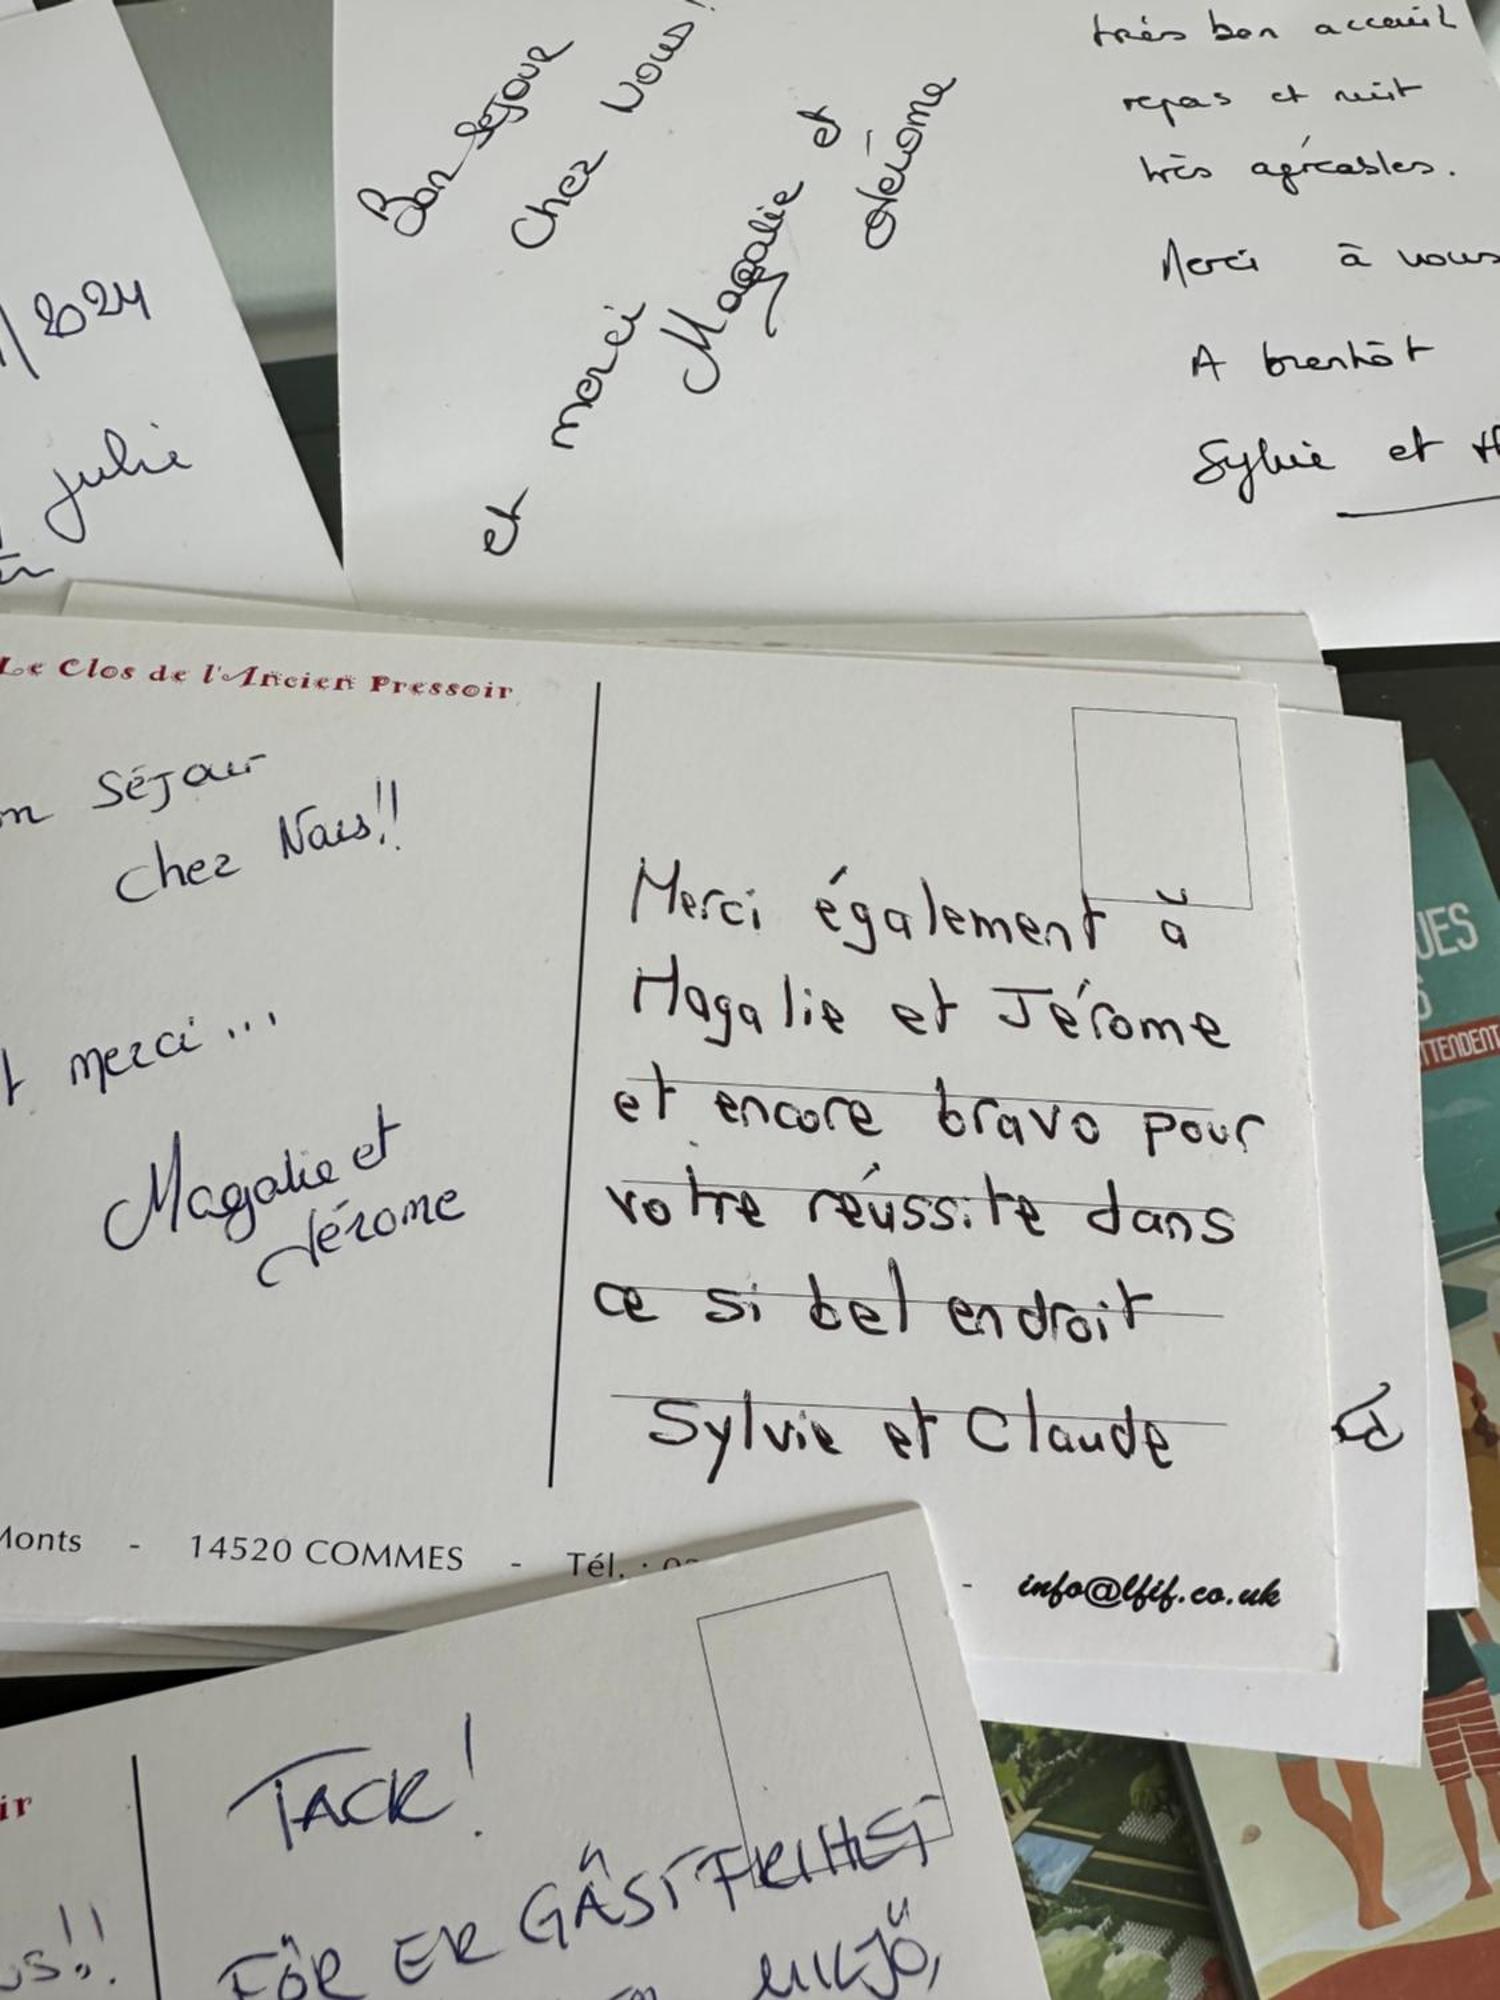 /2024
julie
Bon séjour
Chez Nous!
et merci
Magalie et
Jérome
très bon acceuil
repas et nuit
très agréables.
Merci à vous
A bientôt
Sylvie et
Le Clos de l'Ancien Pressoir
Séjour
chez Nous!!
merci ...
Magalie et
Jérome
Merci également à
Magalie et Jérome
et encore bravo pour
votre réussite dans
ce si bel endroit
Sylvie et Claude
Monts - 14520 COMMES - Tél. :
- info@lfif.co.uk
UES
TTENDENT
ir
TACK!
FÖR ER GÄSTFRIHET
MILJÖ,
us!!